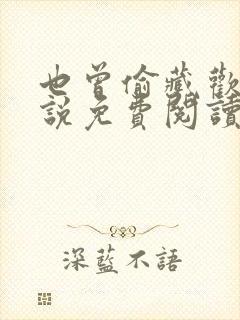 也曾偷藏歡
說免費閱讀
深藍不語